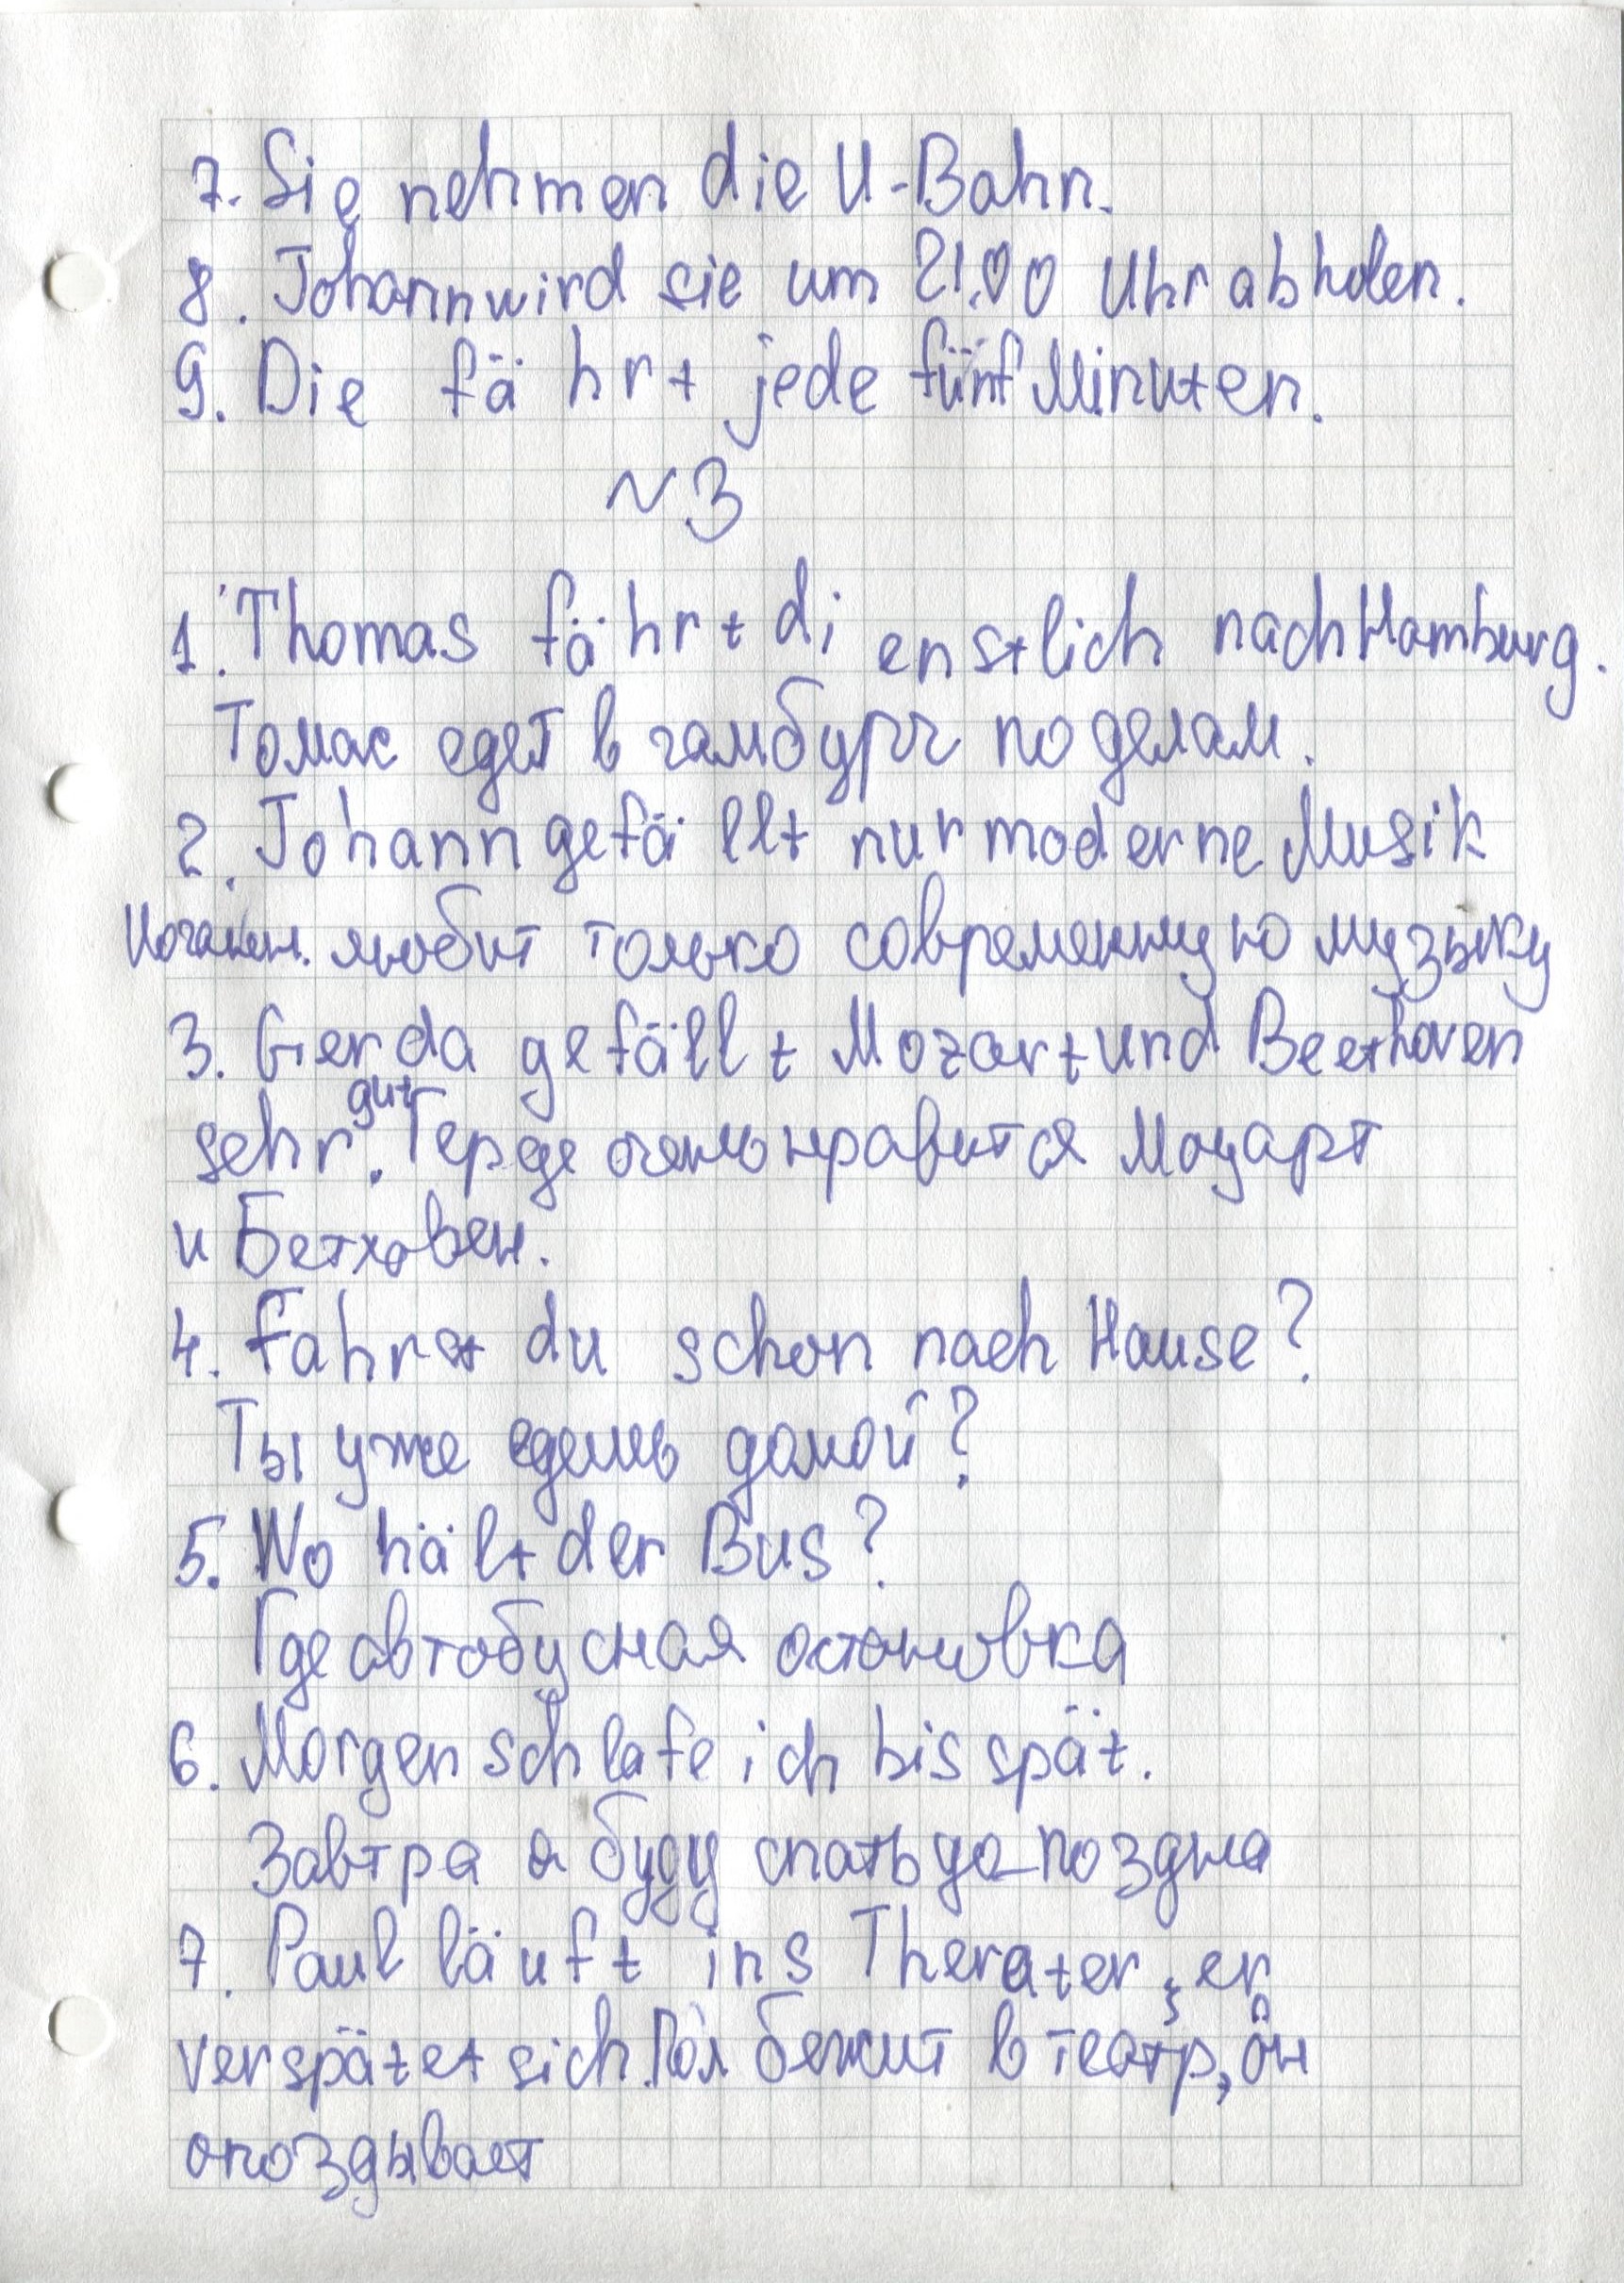 7. Sie nehmen die U-Bahn.
8. Johann wird sie um 21.00 Uhr abholen.
9. Die fährt jede fünf Minuten.
№3
1. Thomas fährt dienstlich nach Hamburg.
Томас едет в гамбург по делам.
2. Johann gefällt nur moderne Musik
Иоганн. любит только современную музыку
3. Gerda gefällt Mozart und Beethoven
gut
sehr. Герде очень нравится Моцарт
и Бетховен.
4. Fahrst du schon nach Hause?
Ты уже едешь домой?
5. Wo hält der Bus?
Где автобусная остановка
6. Morgen schlafe ich bis spät.
Завтра я буду спать до поздна
7. Paul läuft ins Therater, er
verspätet sich. Пол бежит в театр, он
опоздывает